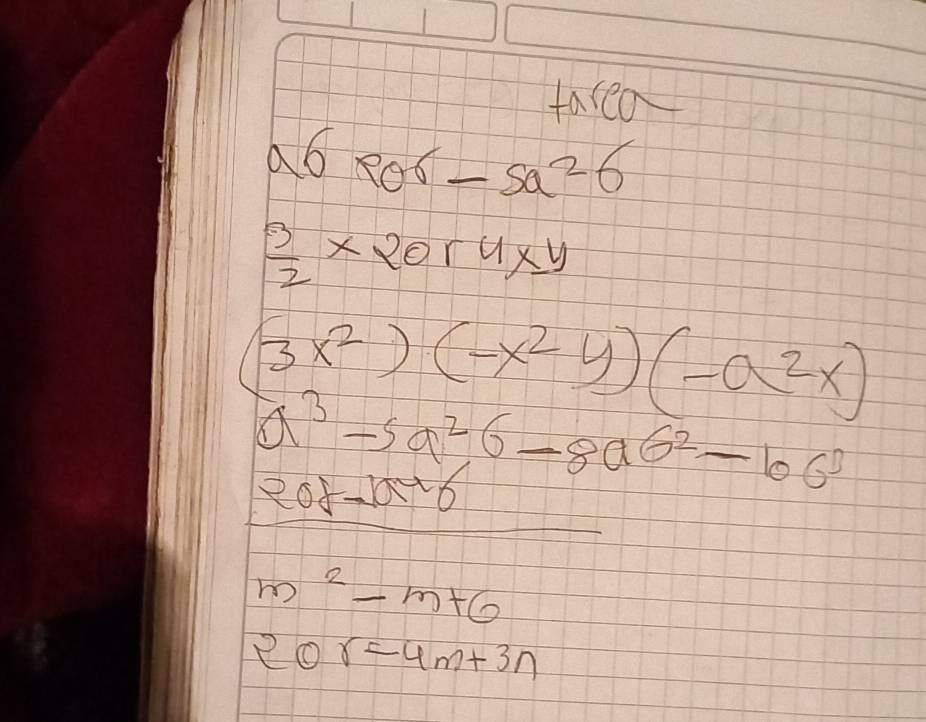 tarea
ab por -5a²b
3/2 x por 4xy
(3x²) (-x² y) (-a²x)
a³ -5a²b -8ab² - bb³
por -a+b
m² - m + 6
por -4m + 3n